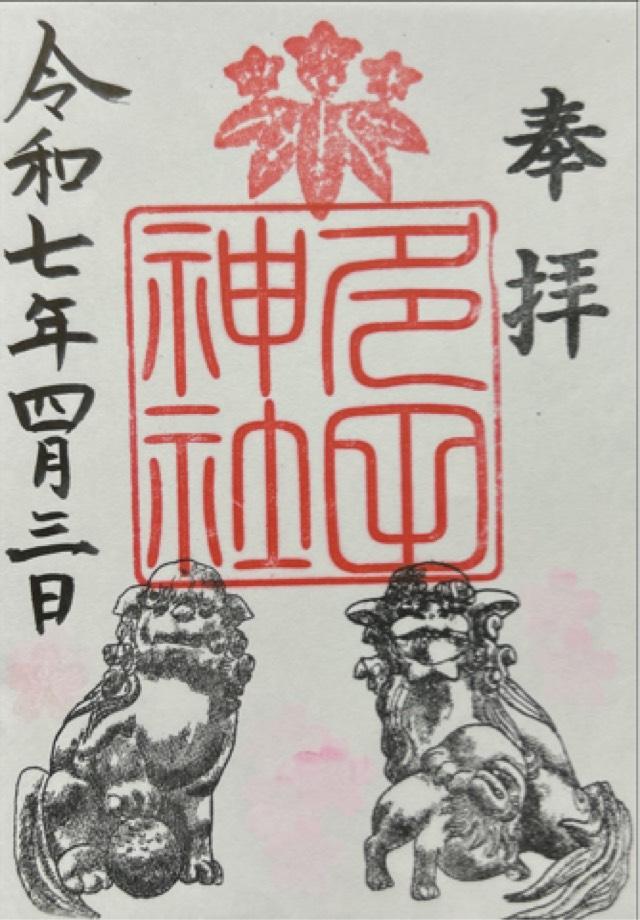 奉拝
多田
神社
令和七年四月三日